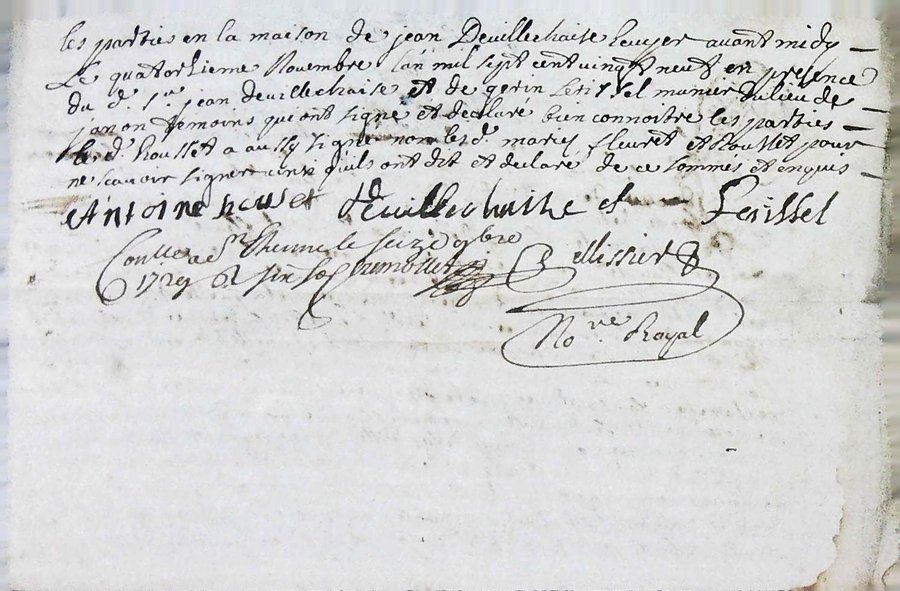 les parties en la maison de jean Devillechaise heuyer avant midy
Le quatorhieme Novembre l'an mil sept cent vingt neuf en presence
du d. sr. jean devillechaise et de gerin Lerissel munier du lieu de
janon temoins qui ont signe et declaré bien connoitre les parties
le d. housset a aussy signe non les d. maries fleuret et Rousset pour
ne scavoir signer ainsi quils ont dit et declaré de ce sommés et enquis
Antoine houset devillechaise Lerissel
Conlle a St. Ehienne le seize 9bre Pellissier
1729 six s.
No.re Royal